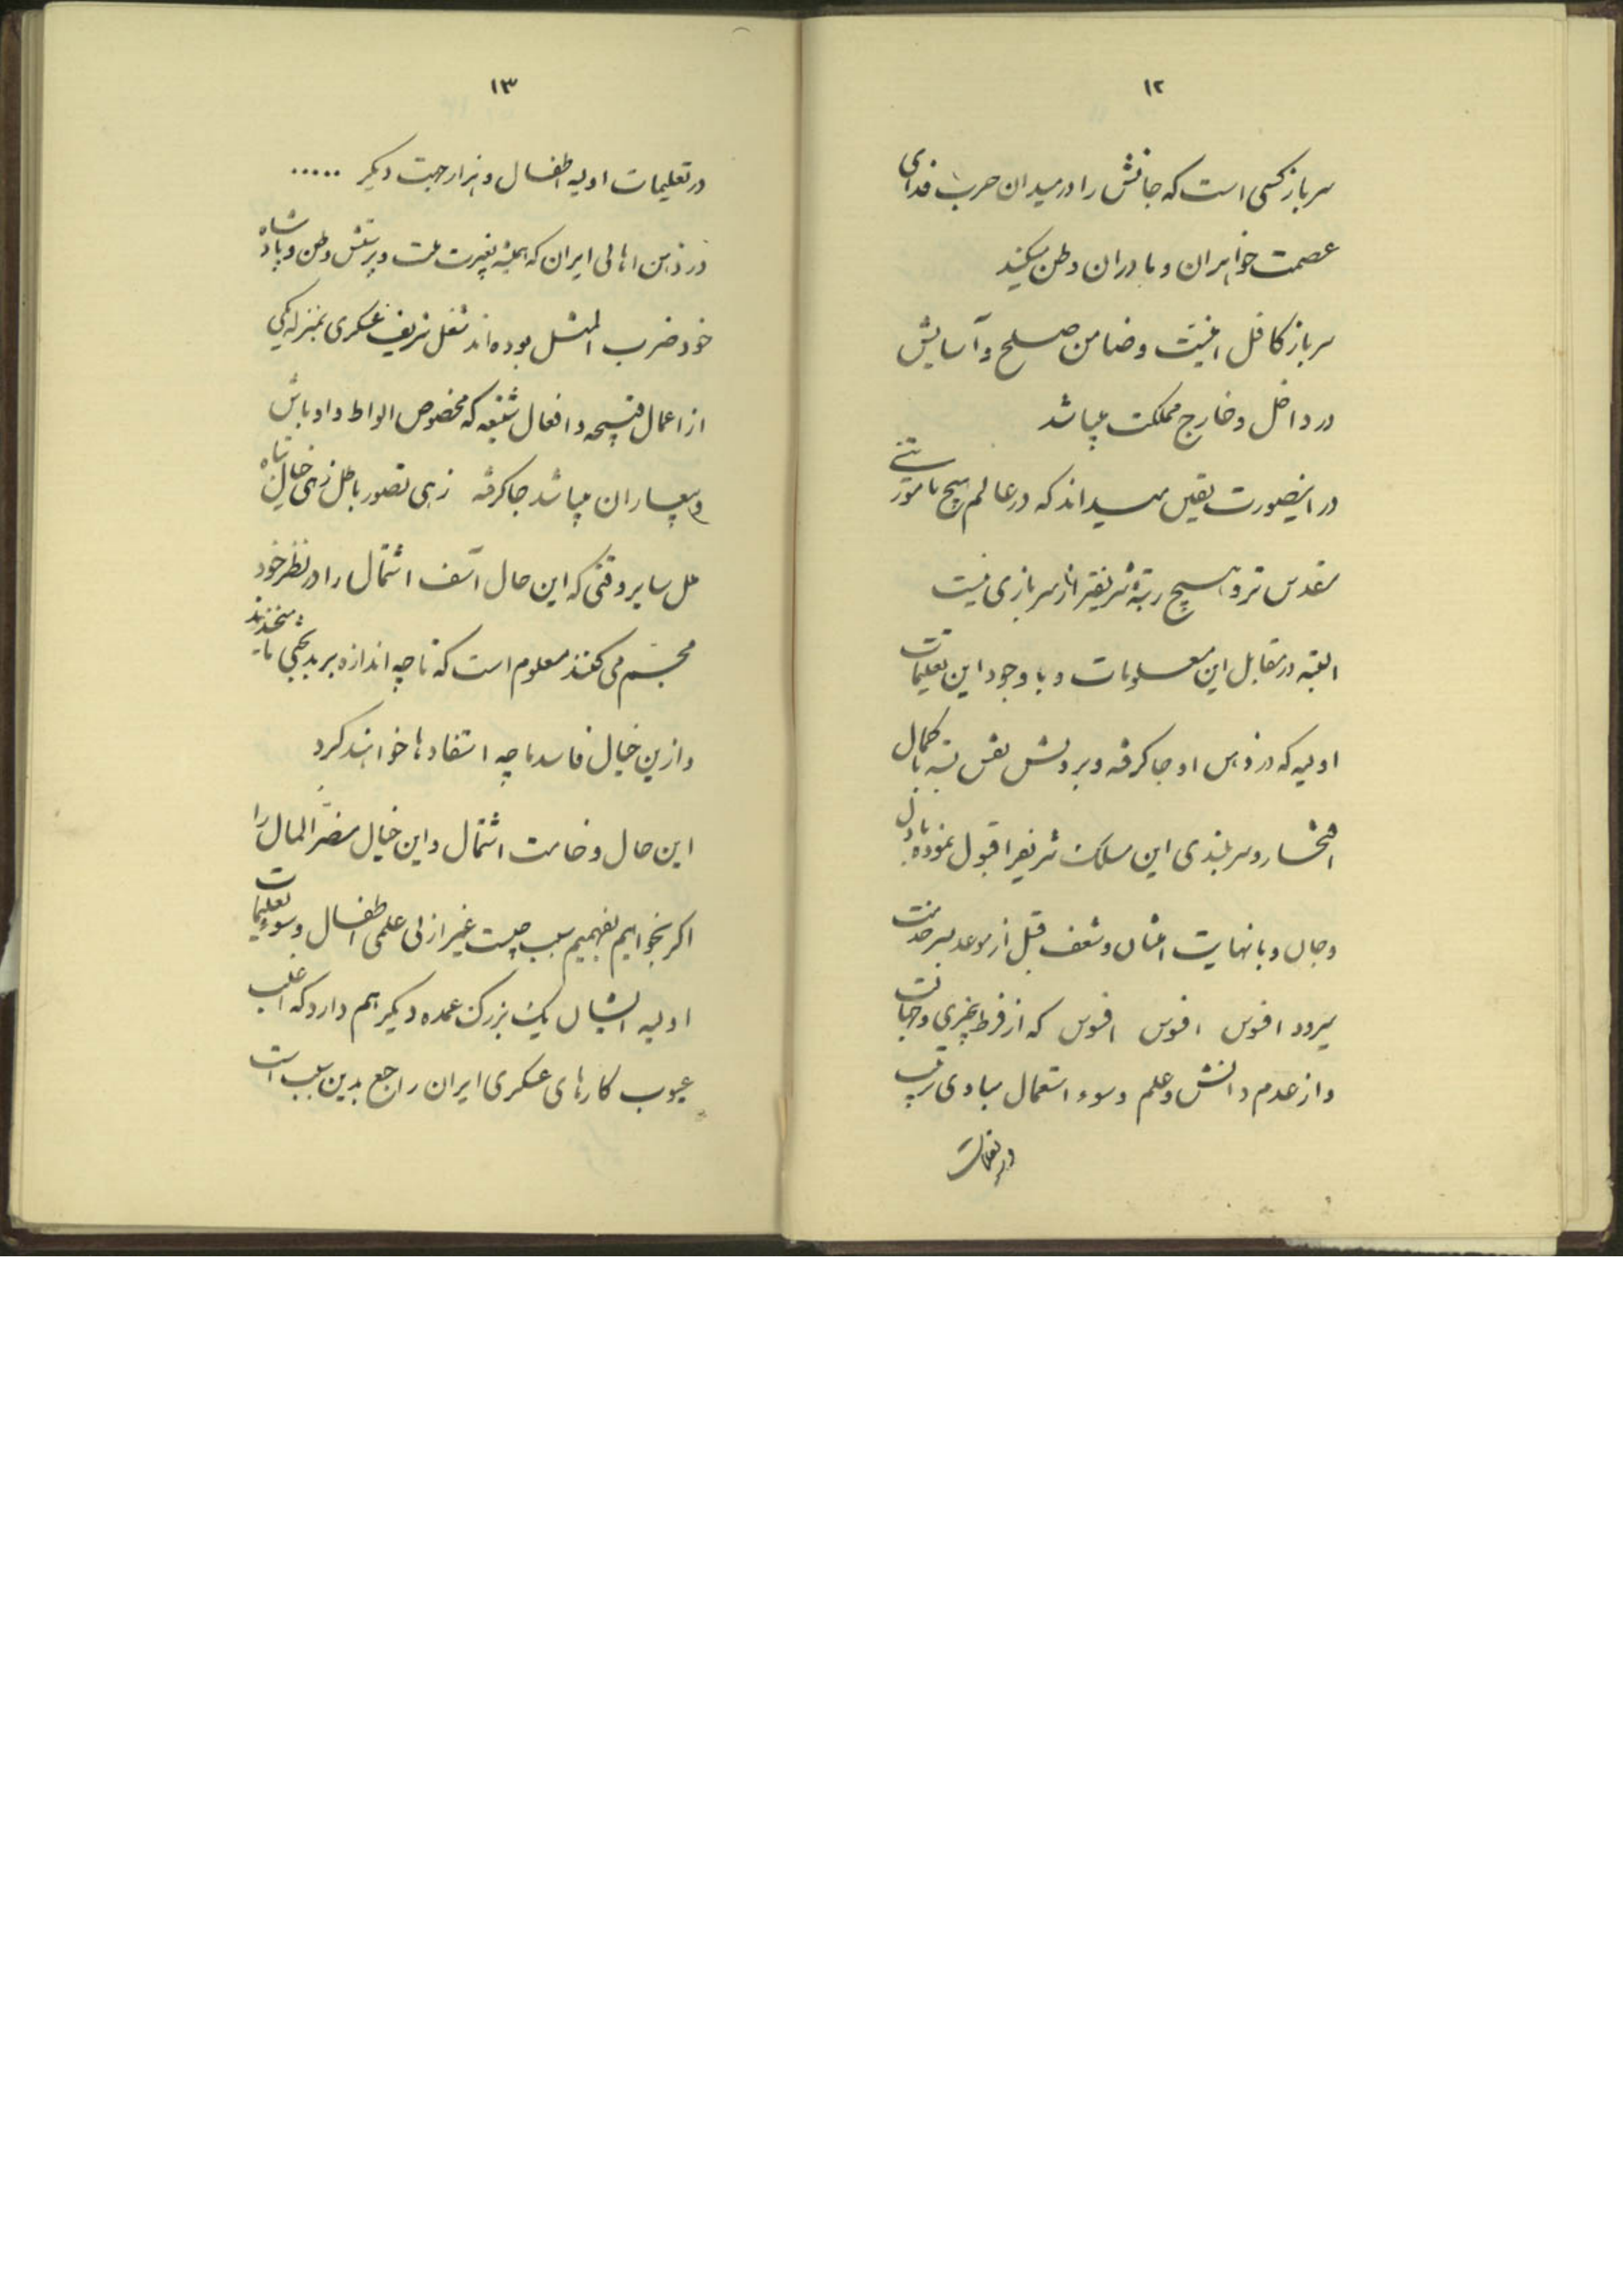 ۱۲
سرباز کسی است که جانش را در میدان حرب فدای
عصمت خواهران و مادران وطن میکند
سرباز کافل امنیت و ضامن صلح و آسایش
در داخل و خارج مملکت میباشد
در اینصورت یقین میداند که در عالم هیچ مأموریتی
مقدس تر و هیچ رتبهٔ شریفتر از سربازی نیست
البته در مقابل این معلومات و با وجود این تعلیمات
اولیه که در ذهن او جا گرفته و بر دلش نقش بسته با کمال
افتخار و سربلندی این مسلک شریفرا قبول نموده با دل
و جان و با نهایت امتنان و شعف قبل از موعد بسر خدمت
میرود افسوس افسوس افسوس که از فرط بیخبری و جهالت
و از عدم دانش و علم و سوء استعمال مبادی تربیت
در تعلیمات
۱۳
در تعلیمات اولیه اطفال و هزار جهت دیگر .....
در ذهن اهالی ایران که همیشه بغیرت ملت و پرستش وطن و پادشاه
خود ضرب المثل بوده اند شغل شریف عسکری بمنزله یکی
از اعمال قبیحه و افعال شنیعه که مخصوص الواط و اوباش
و بیعاران میباشد جا گرفته زهی تصور باطل زهی خیال تباه
ملل سایر وقتی که این حال اسف اشتمال را در نظر خود
مجسّم می کنند معلوم است که تا چه اندازه بر بدبختی ما میخندند
و ازین خیال فاسد ما چه استفادها خواهند کرد
این حال وخامت اشتمال و این خیال مضرّ المال را
اگر بخواهیم بفهمیم سبب چیست غیر از بی علمی اطفال و سوء تعلیمات
اولیه ایشان یک بزرگ عمده دیگر هم دارد که اغلب
عیوب کارهای عسکری ایران راجع بدین سبب است